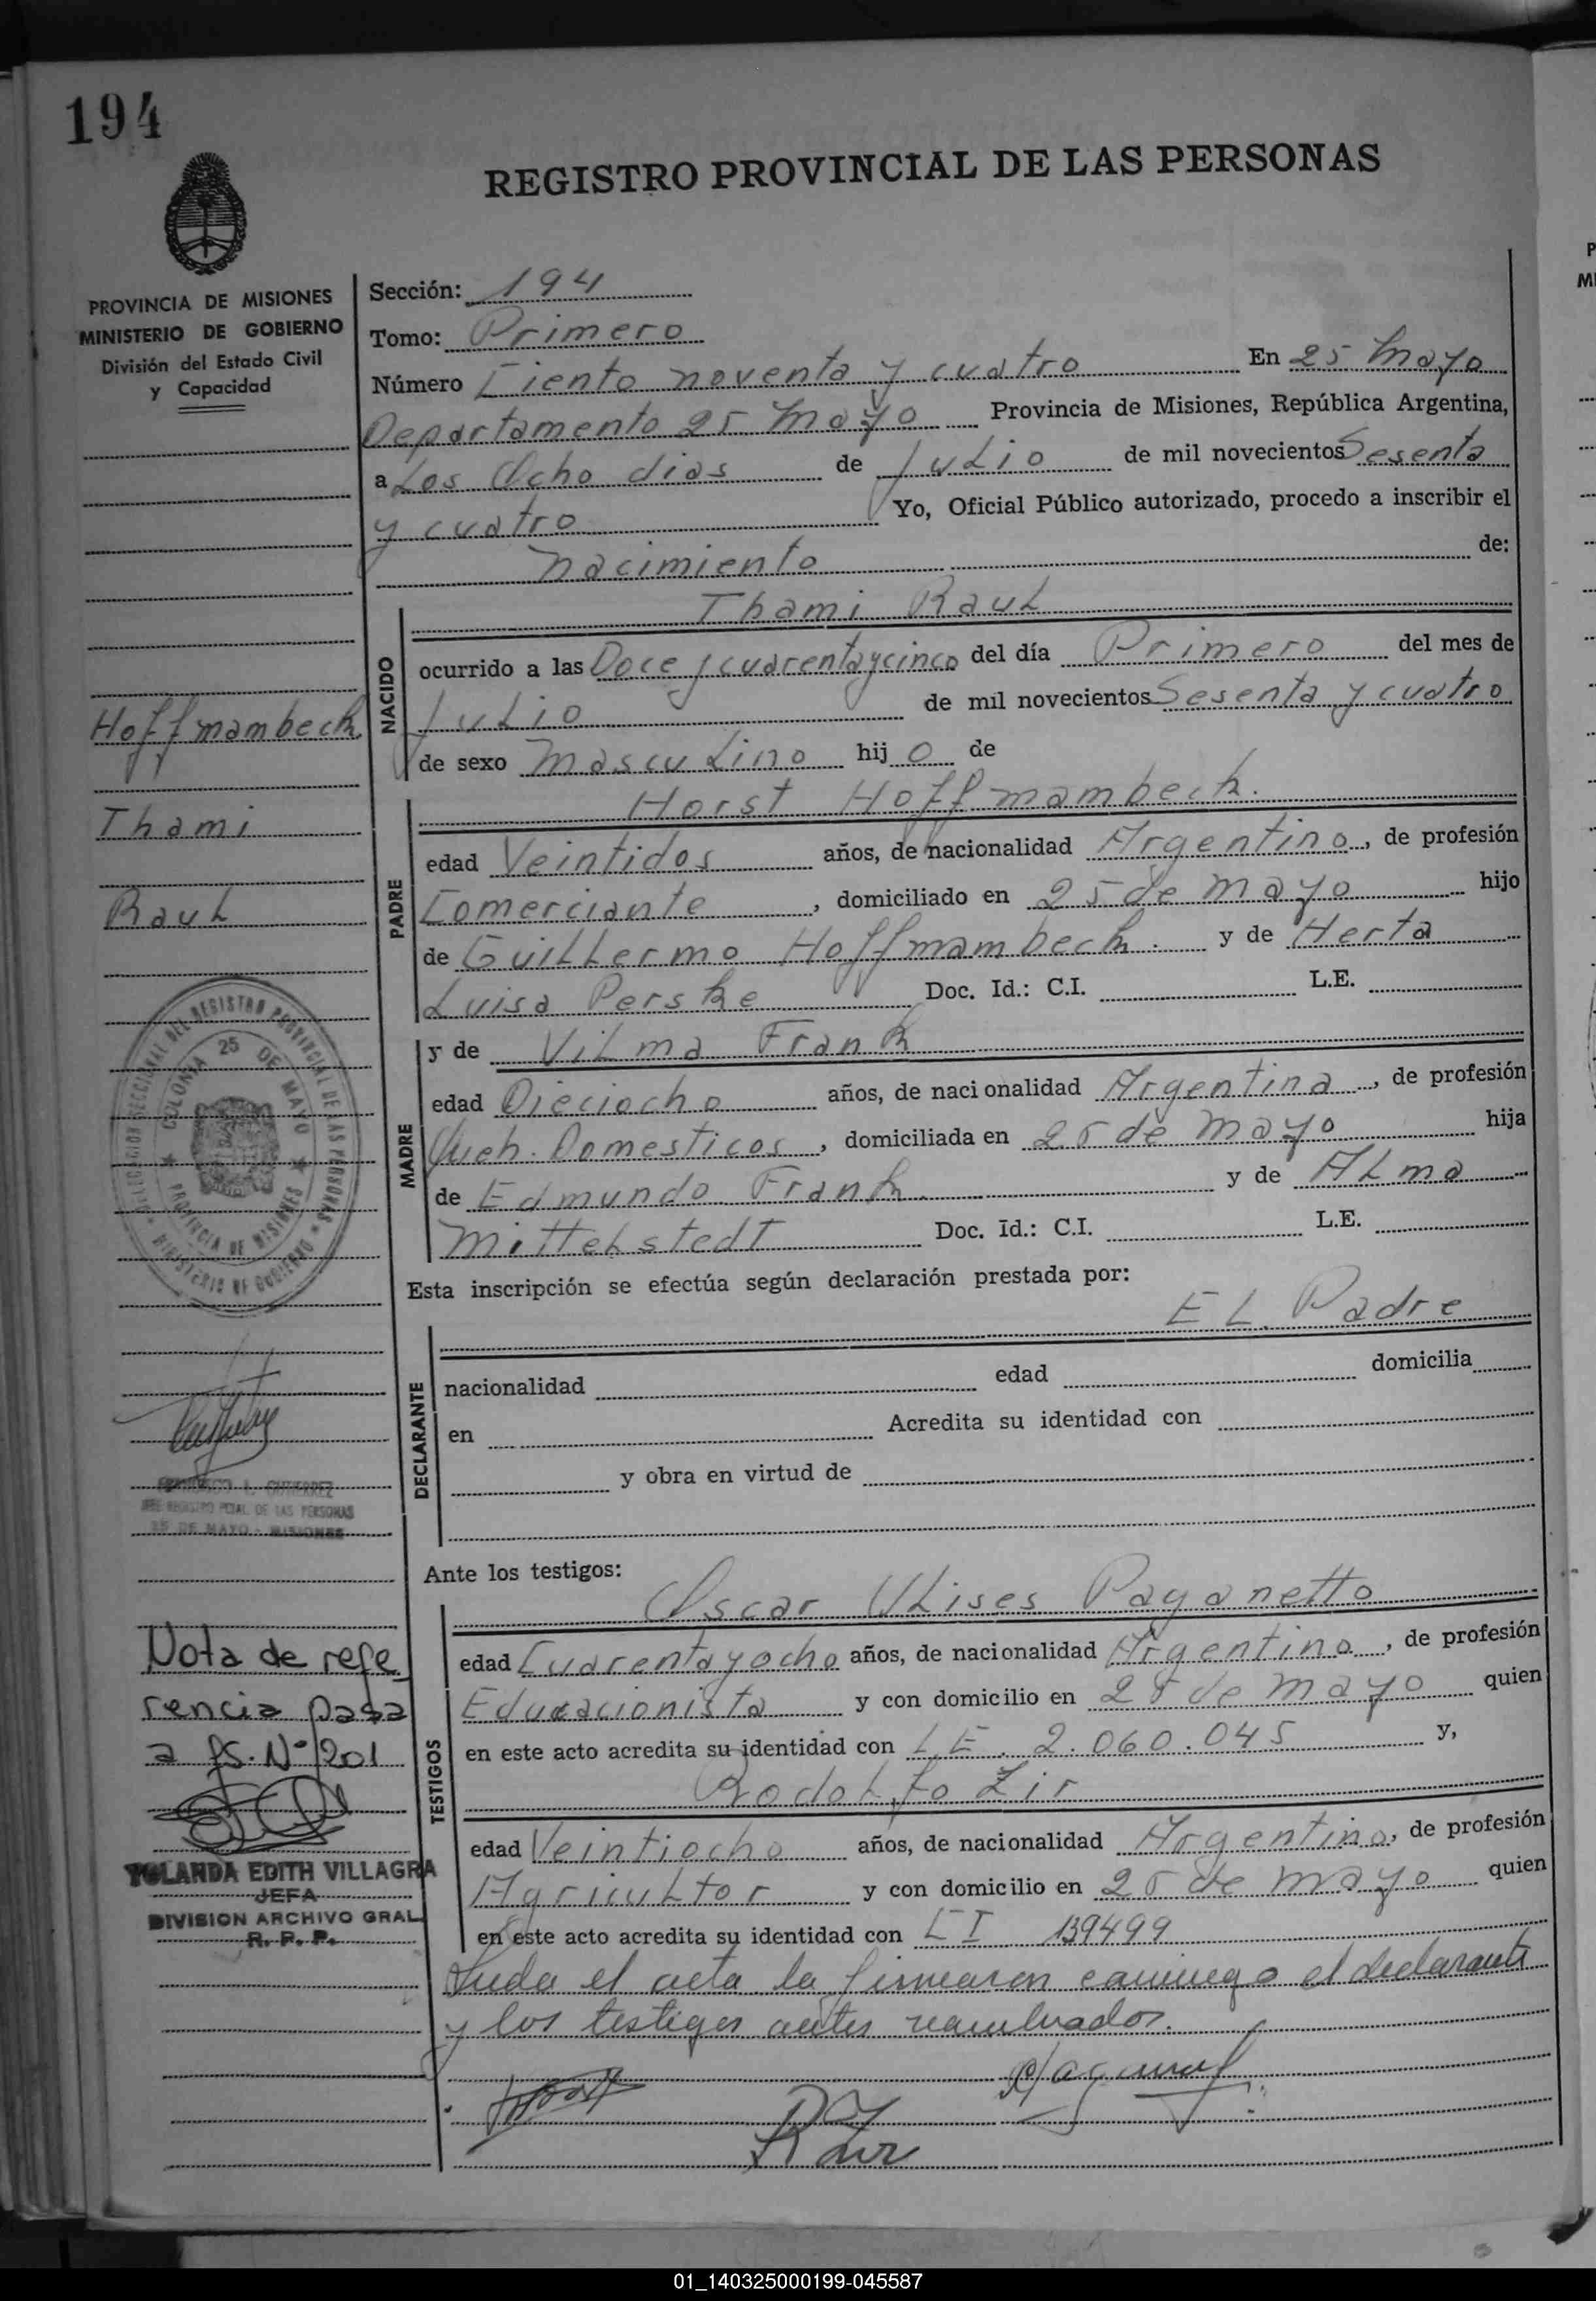 194
REGISTRO PROVINCIAL DE LAS PERSONAS
PROVINCIA DE MISIONES
MINISTERIO DE GOBIERNO
División del Estado Civil
y Capacidad
Hoffmambeck
Thami
Raul
DELEGACION SECCIONAL DEL REGISTRO PROVINCIAL DE LAS PERSONAS
COLONIA 25 DE MAYO
PROVINCIA DE MISIONES
MINISTERIO DE GOBIERNO
L. GUTIERREZ
REGISTRO PCIAL. DE LAS PERSONAS
25 DE MAYO - MISIONES
Nota de refe
rencia pasa
a fs. Nº 201
YOLANDA EDITH VILLAGRA
JEFA
DIVISION ARCHIVO GRAL.
R. P. P.
Sección: 194
Tomo: Primero
Número Ciento noventa y cuatro En 25 Mayo
Departamento 25 Mayo Provincia de Misiones, República Argentina,
a Los Ocho dias de Julio de mil novecientos Sesenta
y cuatro Yo, Oficial Público autorizado, procedo a inscribir el
Nacimiento de:
NACIDO
Thami Raul
ocurrido a las Doce y cuarentaycinco del día Primero del mes de
Julio de mil novecientos Sesenta y cuatro
de sexo Masculino hijo de
PADRE
Horst Hoffmambeck.
edad Veintidos años, de nacionalidad Argentino, de profesión
Comerciante, domiciliado en 25 de Mayo hijo
de Guillermo Hoffmambeck. y de Herta
Luisa Perske Doc. Id.: C.I. L.E.
MADRE
y de Vilma Frank
edad Dieciocho años, de nacionalidad Argentina, de profesión
Queh. Domesticos, domiciliada en 25 de Mayo hija
de Edmundo Frank. y de Alma
Mittelstedt Doc. Id.: C.I. L.E.
Esta inscripción se efectúa según declaración prestada por:
El Padre
DECLARANTE
nacionalidad edad domicilia
en Acredita su identidad con
y obra en virtud de
Ante los testigos:
TESTIGOS
Oscar Ulises Paganetto
edad Cuarentayocho años, de nacionalidad Argentino, de profesión
Educacionista y con domicilio en 25 de Mayo quien
en este acto acredita su identidad con L.E. 2.060.045 y,
Rodolfo Zir
edad Veintiocho años, de nacionalidad Argentino, de profesión
Agricultor y con domicilio en 25 de Mayo quien
en este acto acredita su identidad con CI 139499
Leida el acta la firmaron conmigo el declarante
y los testigos antes nombrados.
R Zir
01_140325000199-045587